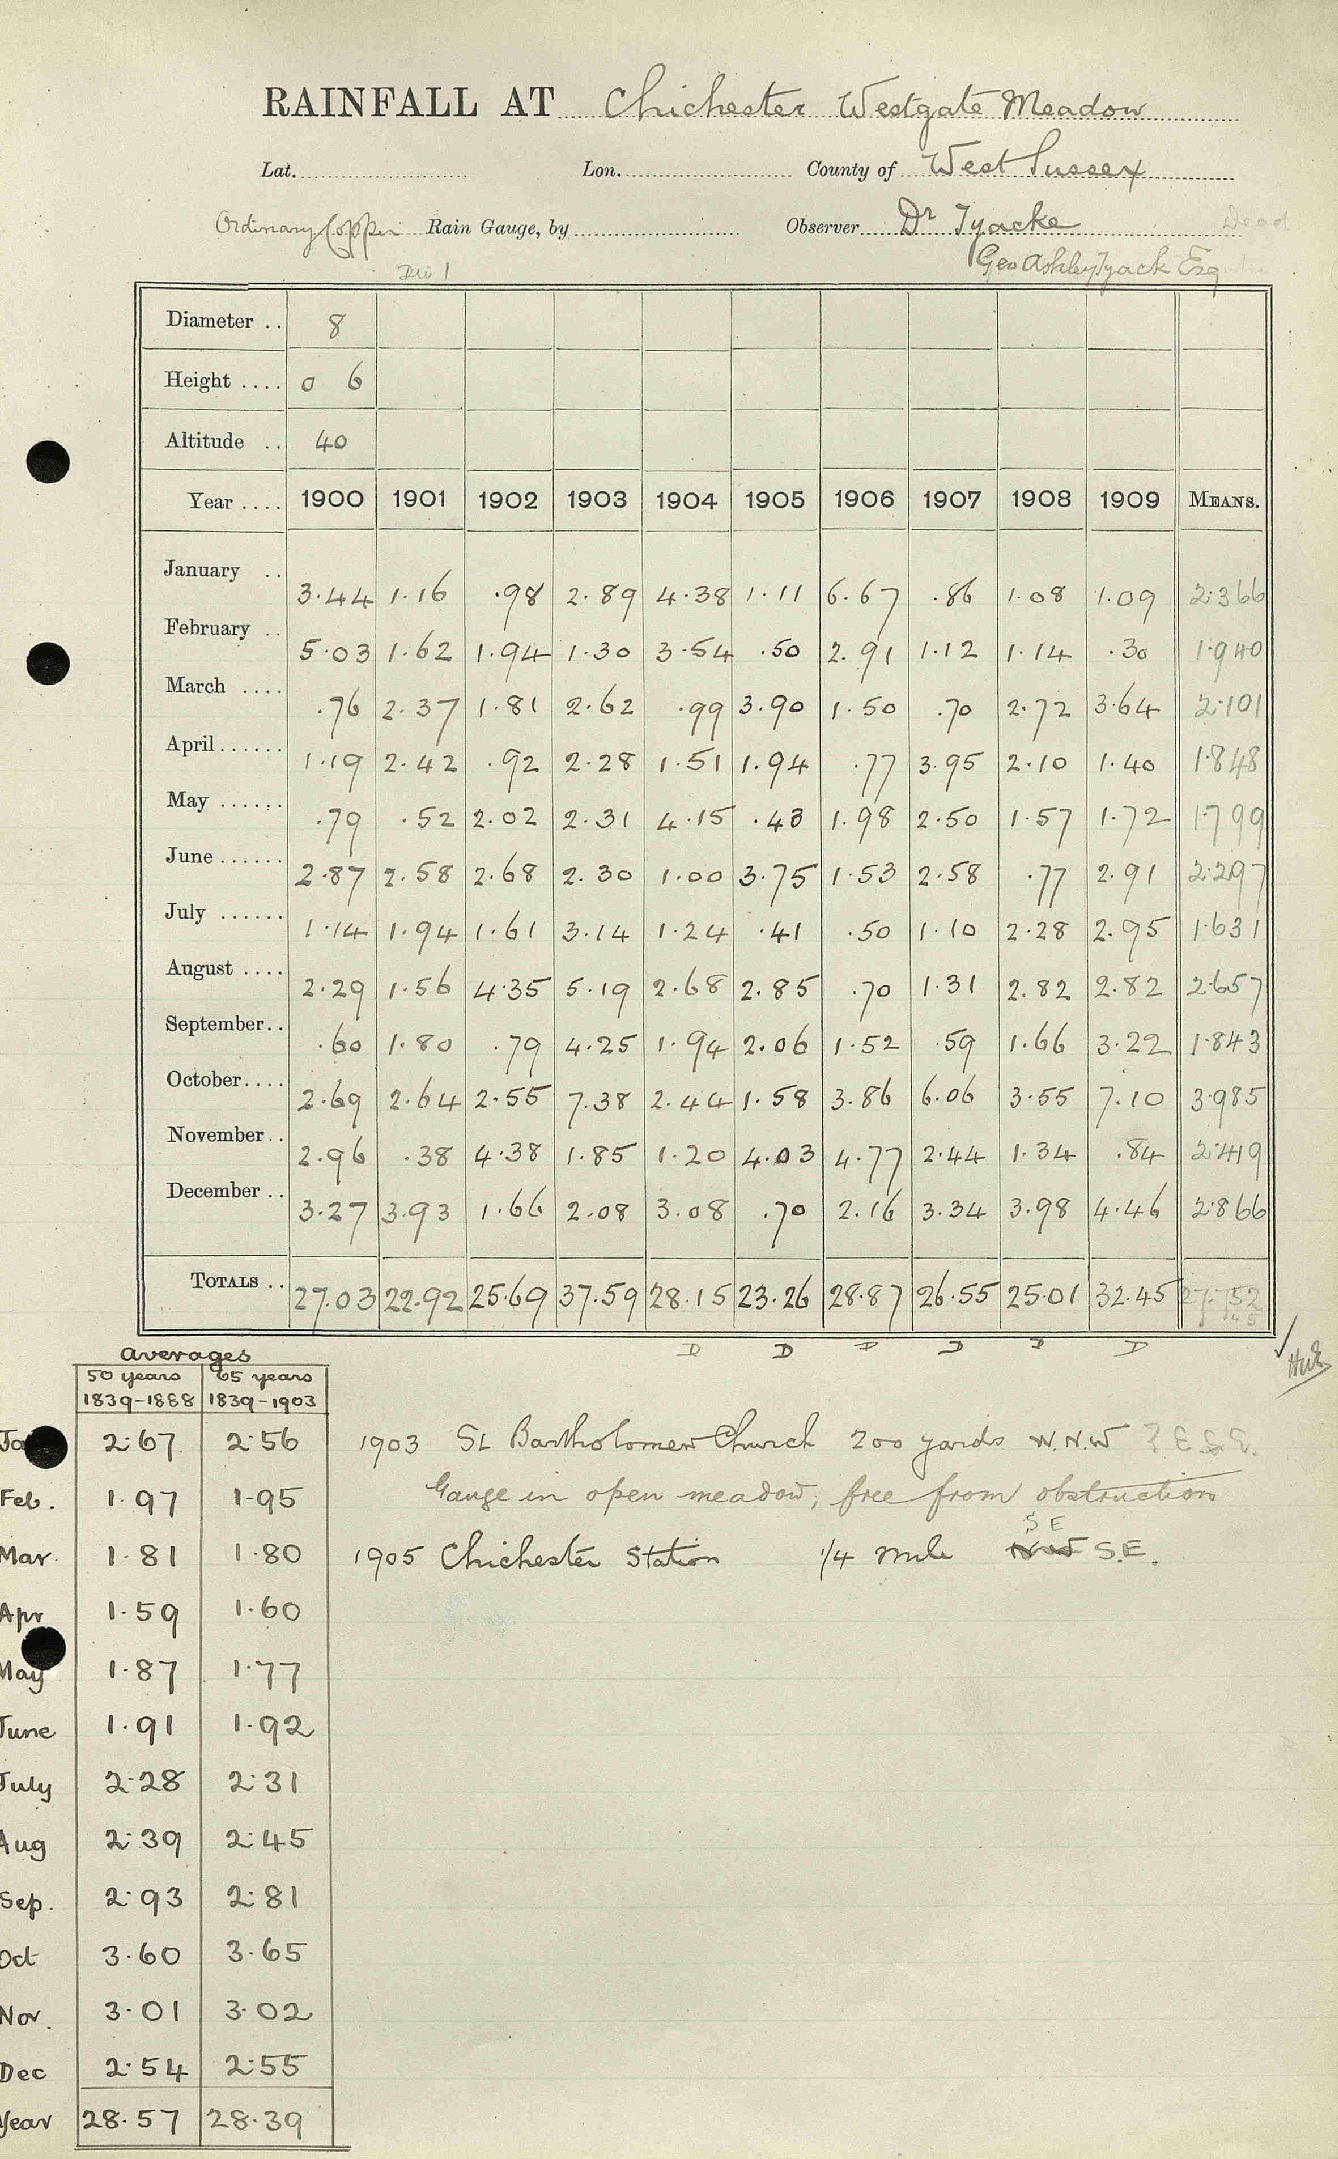 RAINFALL AT Chichester Westgate Meadow
Lat. Lon. County of West Sussex
Ordinary Copper Rain Gauge, by Observer Dr Tyacke Dead
Geo Ashley Tyack Esq
Diameter .. 8
Height .... 0 6
Altitude .. 40
Year .... 1900 1901 1902 1903 1904 1905 1906 1907 1908 1909 MEANS.
January .. 3.44 1.16 .98 2.89 4.38 1.11 6.67 .86 1.08 1.09 2.366
February .. 5.03 1.62 1.94 1.30 3.54 .50 2.91 1.12 1.14 .30 1.940
March .... .76 2.37 1.81 2.62 .99 3.90 1.50 .70 2.72 3.64 2.101
April ...... 1.19 2.42 .92 2.28 1.51 1.94 .77 3.95 2.10 1.40 1.848
May ...... .79 .52 2.02 2.31 4.15 .43 1.98 2.50 1.57 1.72 1.799
June ...... 2.87 2.58 2.68 2.30 1.00 3.75 1.53 2.58 .77 2.91 2.297
July ...... 1.14 1.94 1.61 3.14 1.24 .41 .50 1.10 2.28 2.95 1.631
August .... 2.29 1.56 4.35 5.19 2.68 2.85 .70 1.31 2.82 2.82 2.657
September.. .60 1.80 .79 4.25 1.94 2.06 1.52 .59 1.66 3.22 1.843
October.... 2.69 2.64 2.55 7.38 2.44 1.58 3.86 6.06 3.55 7.10 3.985
November.. 2.96 .38 4.38 1.85 1.20 4.03 4.77 2.44 1.34 .84 2.419
December .. 3.27 3.93 1.66 2.08 3.08 .70 2.16 3.34 3.98 4.46 2.866
TOTALS .. 27.03 22.92 25.69 37.59 28.15 23.26 28.87 26.55 25.01 32.45 27.752
D D D D D D
averages
50 years 65 years
1839-1888 1839-1903
Jan 2.67 2.56
Feb. 1.97 1.95
Mar. 1.81 1.80
Apr 1.59 1.60
May 1.87 1.77
June 1.91 1.92
July 2.28 2.31
Aug 2.39 2.45
Sep. 2.93 2.81
Oct 3.60 3.65
Nov. 3.01 3.02
Dec 2.54 2.55
Year 28.57 28.39
1903 St Bartholomew Church 200 yards W.N.W ? E.S.E.
Gauge in open meadow, free from obstruction
S E
1905 Chichester Station 1/4 mile S.E.